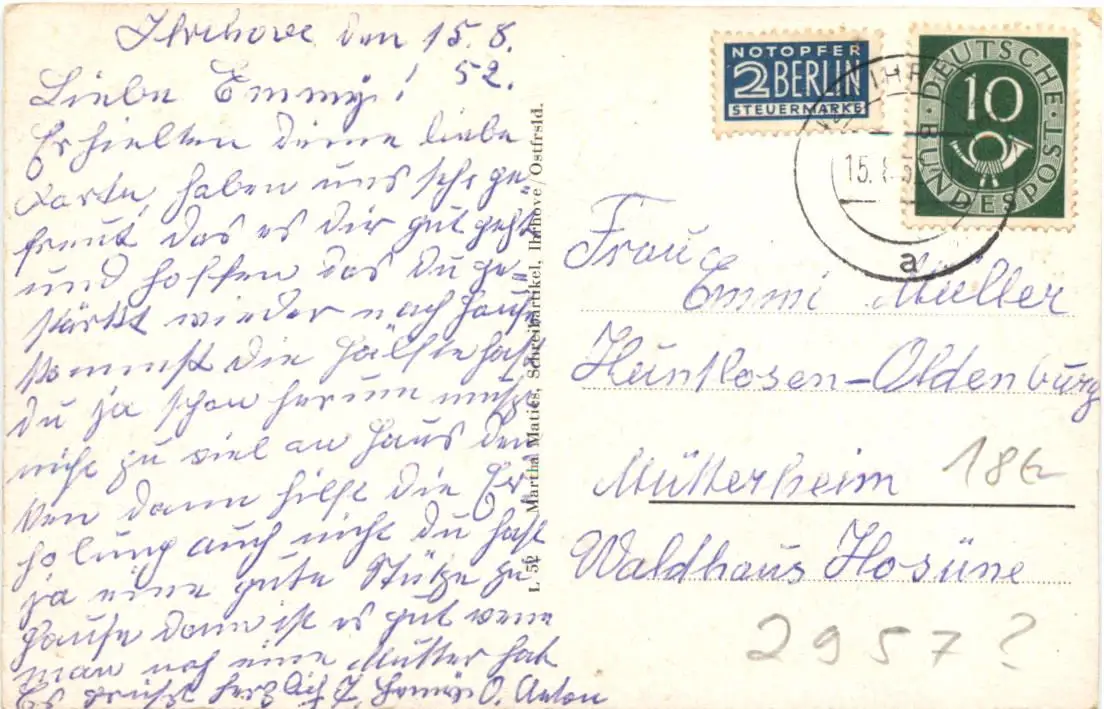 Ihrhove den 15.8.
52.
Liebe Emmy!
Erhielten deine liebe
Karte, haben uns sehr ge=
freut das es dir gut geht
und hoffen das du ge=
stärkt wieder nach Hause
kommst die Hälfte hast
du ja schon herum mußt
nicht zu viel an Haus den
ken dann hilft die Er
holung auch nicht du hast
ja eine gute Stütze zu
Hause dann ist es gut wenn
man noch eine Mutter hat
Es grüßt herzlich T. O. Anton
L. 52 Martha Maties, Schreibartikel, Ihrhove/Ostfrsld.
NOTOPFER
2 BERLIN
STEUERMARKE
DEUTSCHE
BUNDESPOST
10
IHR
15. 8. 5
a
Frau
Emmi Müller
Huntlosen-Oldenburg
Mütterheim
Waldhaus Hosüne
2957?